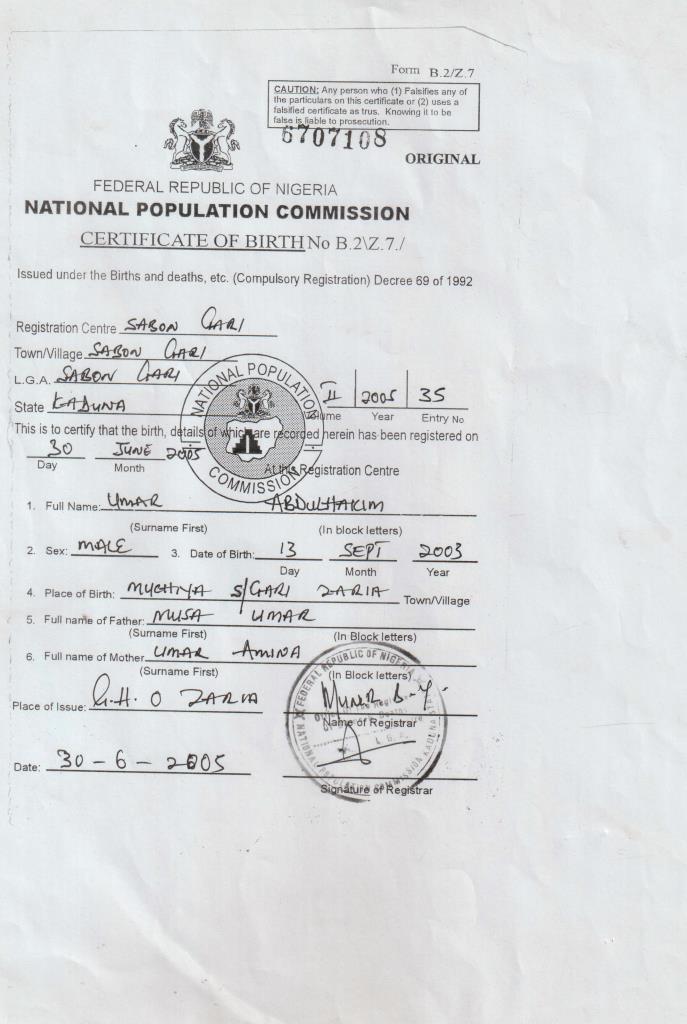 Form B.2/Z.7
CAUTION: Any person who (1) Falsifies any of
the particulars on this certificate or (2) uses a
falsified certificate as trus. Knowing it to be
false is liable to prosecution.
6707108
ORIGINAL
FEDERAL REPUBLIC OF NIGERIA
NATIONAL POPULATION COMMISSION
CERTIFICATE OF BIRTH No B.2\Z.7./
Issued under the Births and deaths, etc. (Compulsory Registration) Decree 69 of 1992
Registration Centre SABON GARI
Town/Village SABON GARI
L.G.A. SABON GARI
NATIONAL POPULATION COMMISSION
II 2005 35
State KADUNA Volume Year Entry No
This is to certify that the birth, details of which are recorded herein has been registered on
30 JUNE 2005
Day Month At this Registration Centre
1. Full Name: UMAR ABDULHAKIM
(Surname First) (In block letters)
2. Sex: MALE 3. Date of Birth: 13 SEPT 2003
Day Month Year
4. Place of Birth: S/GARI ZARIA Town/Village
5. Full name of Father: MUSA UMAR
(Surname First) (In Block letters)
6. Full name of Mother UMAR AMINA
(Surname First) (In Block letters)
Place of Issue: G.H.O ZARIA
Name of Registrar
FEDERAL REPUBLIC OF NIGERIA
NATIONAL POPULATION COMMISSION KADUNA STATE
L.G.A.
Date: 30-6-2005
Signature of Registrar